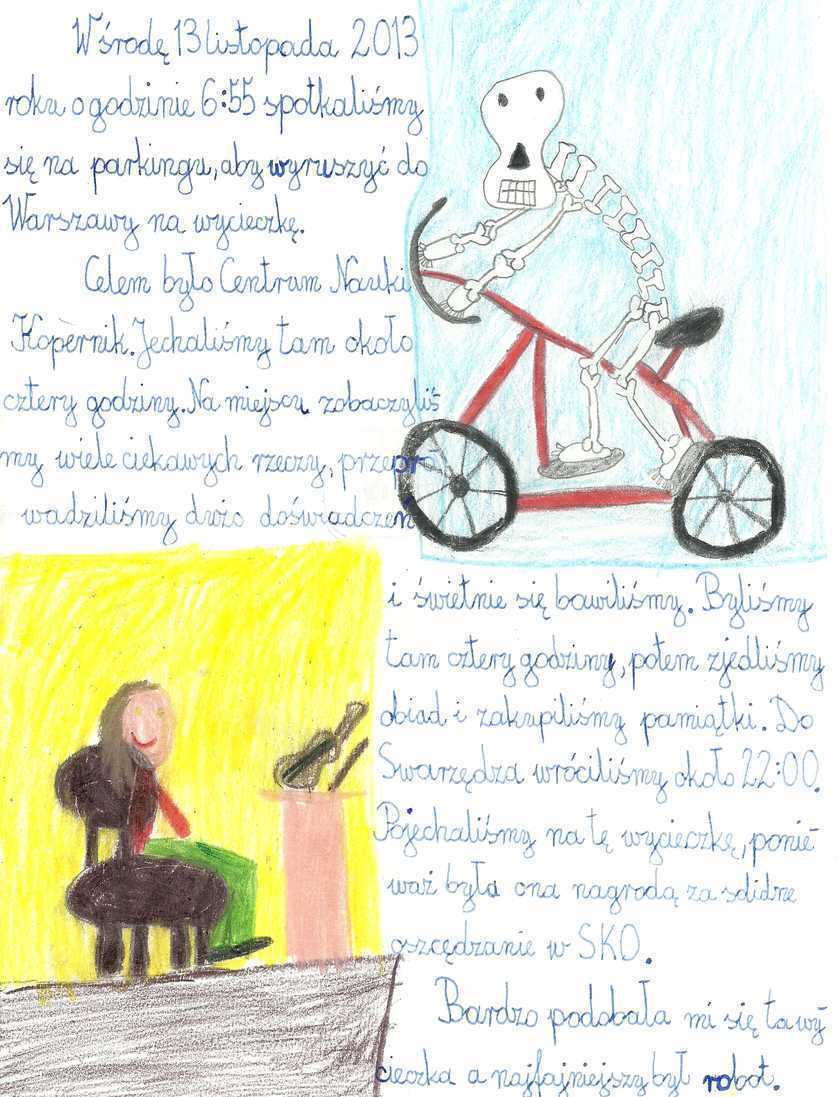 W środę 13 listopada 2013
roku o godzinie 6:55 spotkaliśmy
się na parkingu, aby wyruszyć do
Warszawy na wycieczkę.
Celem było Centrum Nauki
Kopernik. Jechaliśmy tam około
cztery godziny. Na miejscu zobaczyliś
my wiele ciekawych rzeczy, przepro
wadziliśmy dużo doświadczeń
i świetnie się bawiliśmy. Byliśmy
tam cztery godziny, potem zjedliśmy
obiad i zakupiliśmy pamiątki. Do
Swarzędza wróciliśmy około 22:00.
Pojechaliśmy na tę wycieczkę, ponie
waż była ona nagrodą za solidne
oszczędzanie w SKO.
Bardzo podobała mi się ta wy
cieczka a najfajniejszy był robot.